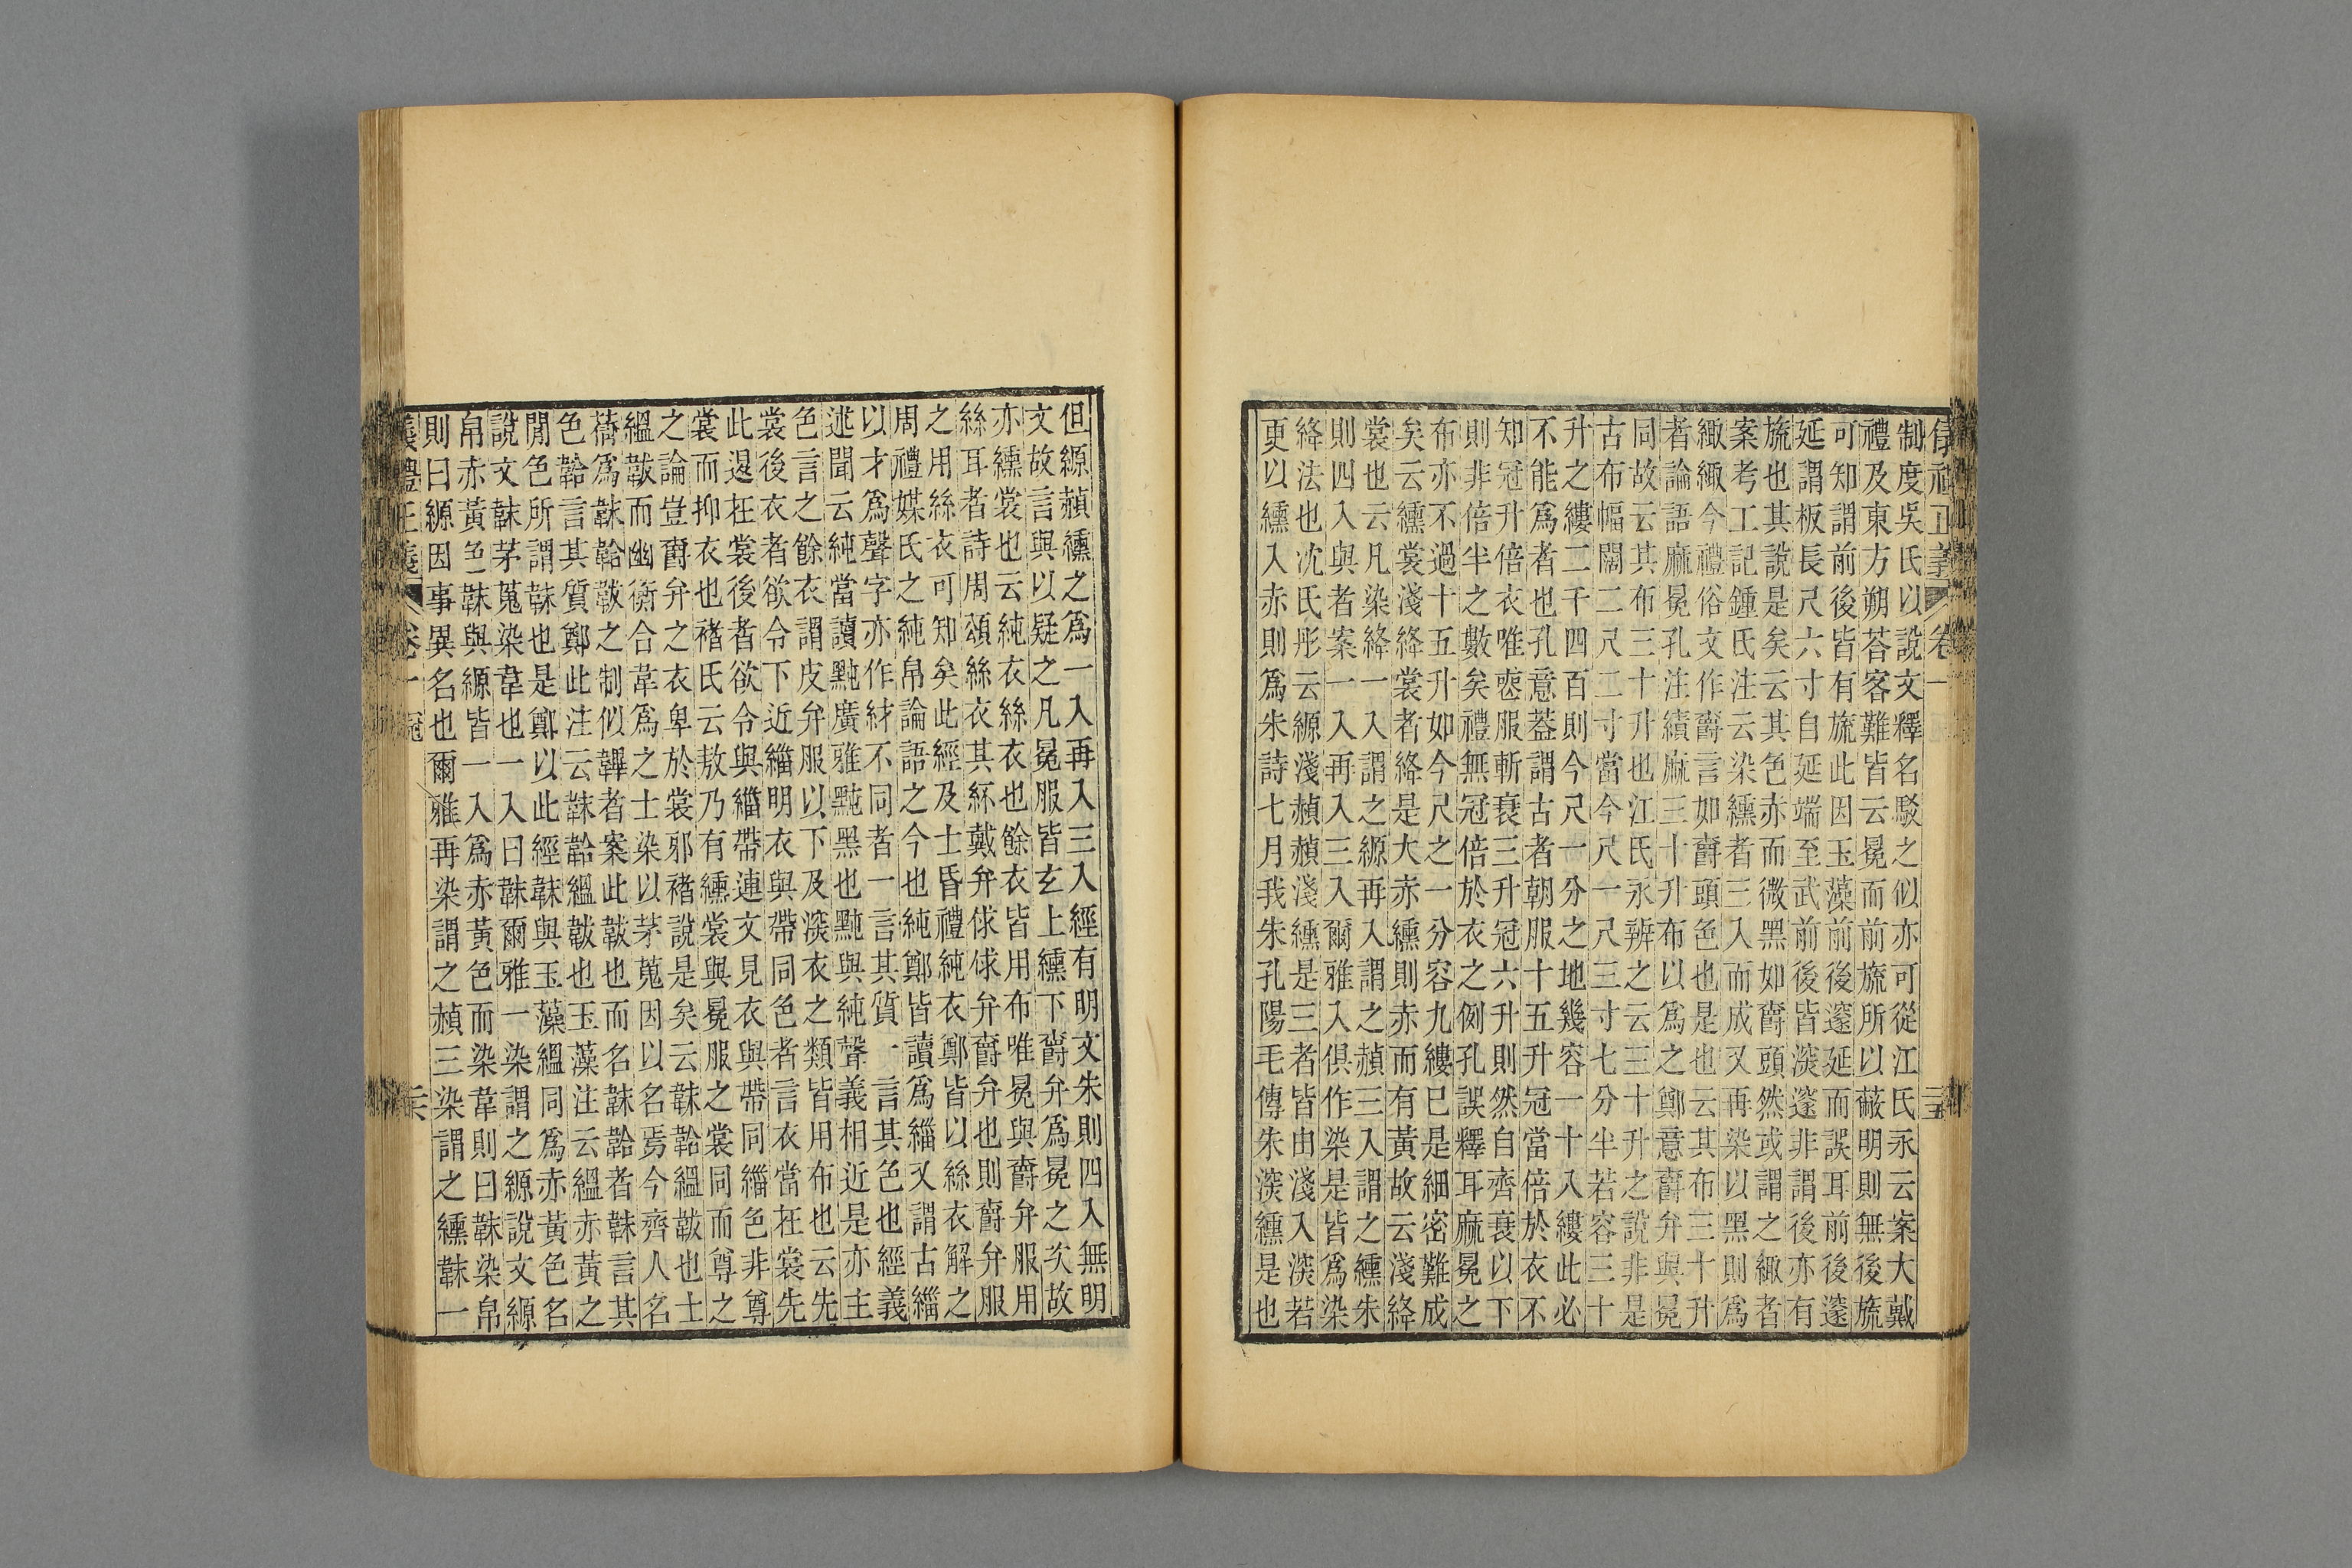 儀禮正義 卷一
制度吳氏以說文釋名駁之似亦可從江氏永云案大戴
禮及東方朔荅客難皆云冕而前旒所以蔽明則無後旒
可知謂前後皆有旒此因玉藻前後邃延而誤耳前後邃
延謂板長尺六寸自延端至武前後皆㴱邃非謂後亦有
旒也其說是矣云其色赤而微黑如爵頭然或謂之緅者
案考工記鍾氏注云染纁者三入而成又再染以黑則爲
緅緅今禮俗文作爵言如爵頭色也是也云其布三十升
者論語麻冕孔注績麻三十升布以爲之鄭意爵弁與冕
同故云其布三十升也江氏永辨之云三十升之說非是
古布幅闊二尺二寸當今尺一尺三寸七分半若容三十
升之縷二千四百則今尺一分之地幾容一十八縷此必
不能爲者也孔意葢謂古者朝服十五升冠當倍於衣不
知冠升倍衣唯喪服斬衰三升冠六升則然自齊衰以下
則非倍半之數矣禮無冠倍於衣之例孔誤釋耳麻冕之
布亦不過十五升如今尺之一分容九縷已是細密難成
矣云纁裳淺絳裳者絳是大赤纁則赤而有黃故云淺絳
裳也云凡染絳一入謂之縓再入謂之赬三入謂之纁朱
則四入與者案一入再入三入爾雅入俱作染是皆爲染
絳法也沈氏彤云縓淺赬赬淺纁是三者皆由淺入㴱若
更以纁入赤則爲朱詩七月我朱孔陽毛傳朱㴱纁是也
但縓赬纁之爲一入再入三入經有明文朱則四入無明
文故言與以疑之凡冕服皆玄上纁下爵弁爲冕之次故
亦纁裳也云純衣絲衣也餘衣皆用布唯冕與爵弁服用
絲耳者詩周頌絲衣其紑戴弁俅俅弁爵弁也則爵弁服
之用絲衣可知矣此經及士昏禮純衣鄭皆以絲衣解之
周禮媒氏之純帛論語之今也純鄭皆讀爲緇又謂古緇
以才爲聲字亦作紂不同者一言其質一言其色也經義
述聞云純當讀黗廣雅黗黑也黗與純聲義相近是亦主
色言之餘衣謂皮弁服以下及㴱衣之類皆用布也云先
裳後衣者欲令下近緇明衣與帶同色者言衣當在裳先
此退在裳後者欲令與緇帶連文見衣與帶同緇色非尊
裳而抑衣也褚氏云敖乃有纁裳與冕服之裳同而尊之
之論豈爵弁之衣卑於裳邪褚說是矣云韎韐縕韍也士
縕韍而幽衡合韋爲之士染以茅蒐因以名焉今齊人名
蒨爲韎韐韍之制似韠者案此韍也而名韎韐者韎言其
色韐言其質鄭此注云韎韐縕韍也玉藻注云縕赤黃之
閒色所謂韎也是鄭以此經韎與玉藻縕同爲赤黃色名
說文韎茅蒐染韋也一入曰韎爾雅一染謂之縓說文縓
帛赤黃色韎與縓皆一入爲赤黃色而染韋則曰韎染帛
則曰縓因事異名也爾雅再染謂之赬三染謂之纁韎一
儀禮正義 卷一 冠